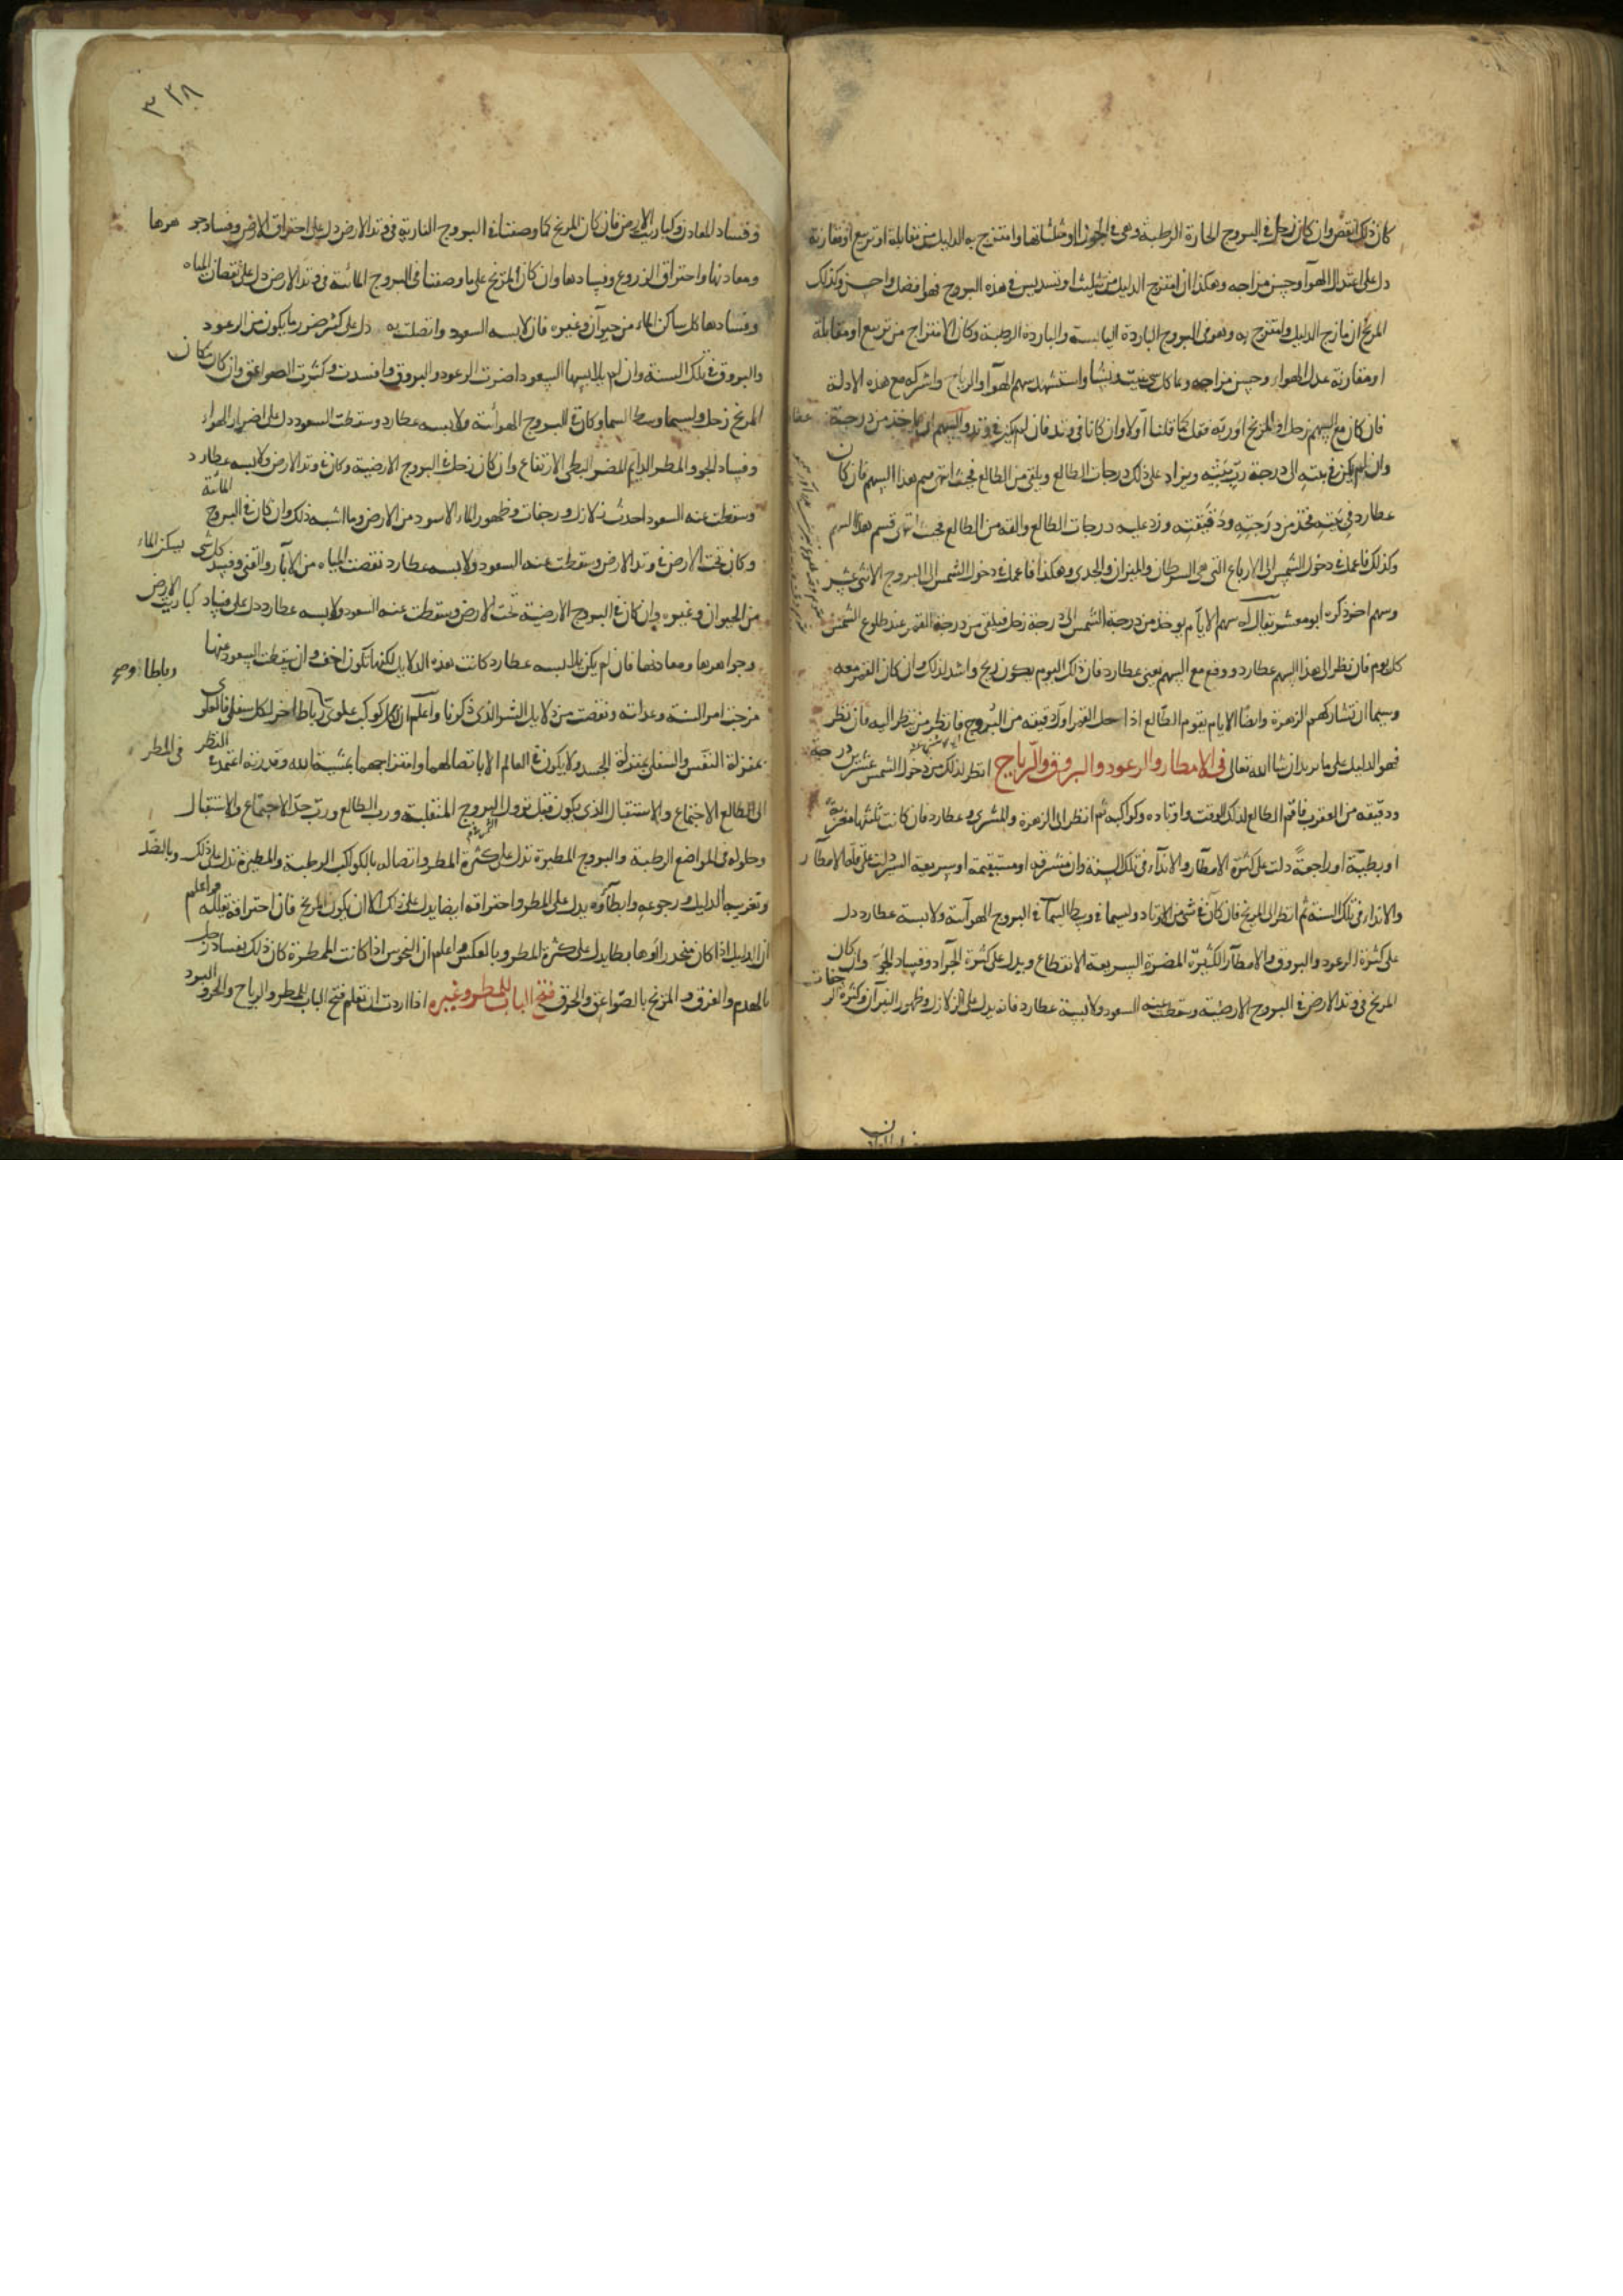 كان ذلك انقص وان كان زحل في البروج الحارة الرطبة وهي في الجوزا ومثلثاتها وامتزج به الدليل من مقابلة او تربيع او مقارنة
دل على اعتدال الهوآ وحسن مزاجه وهكذا ان امتزج الدليل من تثليث او تسديس في هذه البروج فهو افضل واحسن وكذلك
المريخ ان مازج الدليل وامتزج به وهو في البروج الباردة اليابسة والباردة الرطبة وكان الامتزاج من تربيع او مقابلة
او مقارنة عدل الهوآء وحسن مزاجه واستشهد سهم الهوآ والرياح واشركه مع هذه الادلة
فان كان مع السهم زحل او المريخ اوربه فقل كما قلنا اولا وان كانا في وتد فان لم يكن في وتد والسهم من درجة عطارد
وان لم يكن في بيته الى درجة رب بيته ويزاد على ذلك درجات الطالع ويلقى من الطالع فحيث انتهى فثم هذا السهم فان كان
عطارد في بيته فخذ من درجته ودقيقته وزد عليه درجات الطالع والقه من الطالع فحيث انتهى فثم هذا السهم
وكذلك فاعمل في دخول الشمس الى الارباع التي هي السرطان والميزان والجدي وهكذا فاعمل في دخول الشمس الى البروج الاثني عشر
وسهم اخر ذكره ابو معشر يقال له سهم الايام يوخذ من درجة الشمس الى درجة زحل فيلقى من درجة القمر عند طلوع الشمس
كل يوم فان نظر الى هذا السهم عطارد ووقع مع السهم يعني عطارد فان ذلك اليوم يكون ريح واشد لذلك وان كان القمر معه
وسيما ان تشاركهم الزهرة وايضا الايام يقوم الطالع اذا حل القمر اول دقيقه من البروج فانظر من ينظر اليه فان نظر
فهو الدليل على ما تريد ان شا الله تعالى في الامطار والرعود والبروق والرياح انظر لذلك من دخول الشمس عشرين درجة
ودقيقه من العقرب فاقم الطالع لذلك الوقت واوتاده وكواكبه ثم انظر الى الزهرة والمشتري وعطارد فان كانت ثلثتها مغربة
او بطيئة او راجعة دلت على كثرة الامطار والانداء في تلك السنة وان مشرقة او مستقيمة او سريعة السير دلت على قلة الامطار
والانداء في تلك السنة ثم انظر الى المريخ فان كان في شى من الاوتاد ولسيما في وسط السمآ في البروج الهوآئية ولابسه عطارد دل
على كثرة الرعود والبروق والامطار الكثيرة المضرة السريعة الانقطاع ويدل على كثرة الجراد وفساد الجو وان كان
المريخ في وتد الارض في البروج الارضية وسقطت عنه السعود ولابسه عطارد فانه يدل على الزلازل وظهور النيران وكثرة الرجفات
٣٣٨
وفساد المعادن وكباريت الارض فان كان المريخ كما وصفنا في البروج النارية في وتد الارض دل على احتراق الارض وفساد جوهرها
ومعادنها واحتراق الزروع وفسادها وان كان المريخ على ما وصفنا في البروج المائية في وتد الارض دل على نقصان المياه
وفسادها كل ساكن الماء من حيوان وغيره فان لابسه السعود واتصلت به دل على كثير ضرر ما يكون من الرعود
والبروق في تلك السنة وان لم يلابسها السعود اضرت الرعود والبروق وافسدت وكثرت الصواعق وان كان مكان
المريخ زحل ولسيما وسط السما وكان في البروج الهوآئية ولابسه عطارد وسقطت السعود دل على اضرار الهواء
وفساد الجو والمطر الدايم المضر البطي الارتفاع وان كان زحل في البروج الارضية وكان في وتد الارض ولابسه عطارد
وسقطت عنه السعود احدث زلازل ورجفات وظهور الماء الاسود من الارض وما اشبه ذلك وان كان في البروج المائية
وكان تحت الارض في وتد الارض وسقطت عنه السعود ولابسه عطارد نقصت المياه من الآبار والقنى وفسد كل شي يسكن الماء
من الحيوان وغيره وان كان في البروج الارضية تحت الارض وسقطت عنه السعود ولابسه عطارد دل على فساد كباريت الارض
وجواهرها ومعادنها فان لم يكن يلابسه عطارد كانت هذه الدلايل لكنها تكون اخف وان سقطت السعود عنها
مزجت امر السنة وعدلته ونقصت من دلايل الشر الذي ذكرنا واعلم ان لكل كوكب علوي رباطا اخر لكل سفلي فالعلوي
بمنزلة النفس والسفلي بمنزلة الجسد ولا يكون في العالم الا باتصالهما وامتزاجهما بمشية الله وقدرته اعتمد في النظر في المطر
الى الطالع الاجتماع والاستقبال الذي يكون قبل نزول الشمس البروج المنقلبة ورب الطالع ورب جزء الاجتماع والاستقبال
وحلوله في المواضع الرطبة والبروج المطيرة تدل على كثرة المطر واتصاله بالكواكب الرطبة والمطيرة تدل على ذلك وبالضد
وتغريب الدليل ورجوعه وابطآؤه يدل على المطر واحتراقه ايضا يدل على ذلك الا ان يكون المريخ فان احتراقه يقلله واعلم
ان الدليل اذا كان منحدرا او هابطا يدل على كثرة المطر وبالعكس واعلم ان النحوس اذا كانت الممطرة كان ذلك بفساد زحل
بالهدم والغرق والمريخ بالصواعق والحرق فتح الباب للمطر وغيره اذا اردت ان تعلم فتح الباب للمطر والرياح والحر والبرد